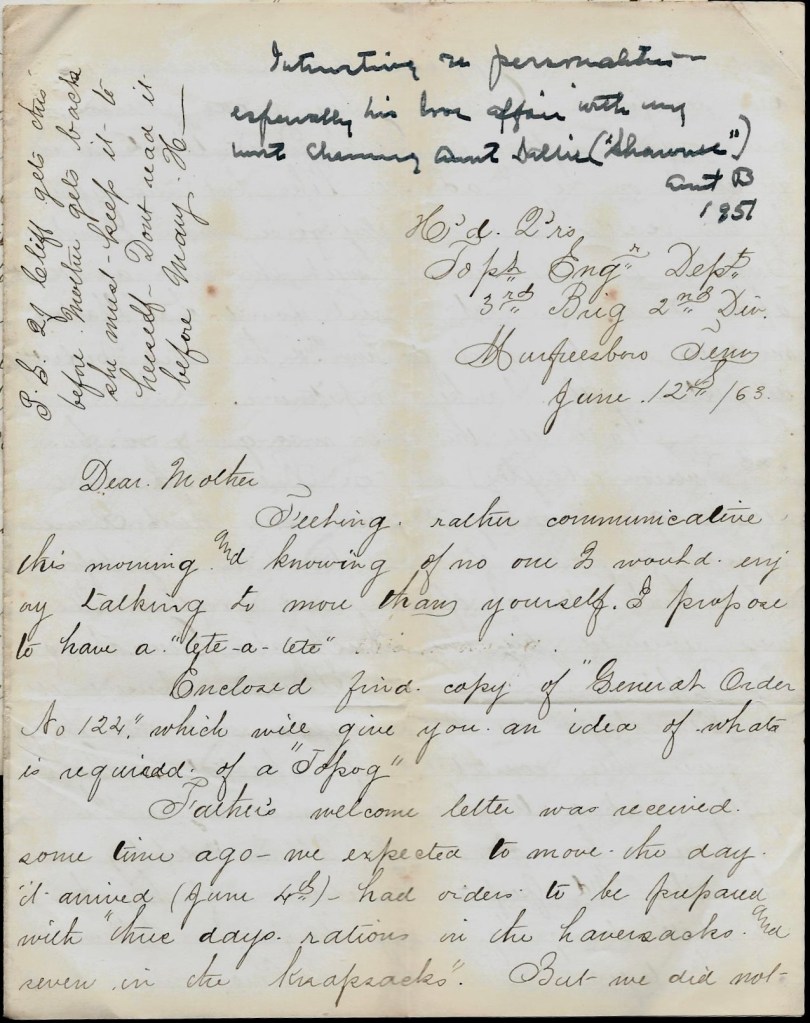 Interesting re personalities –
especially his love affair with my
most charming Aunt Dallie ("Shawnee")
Aunt B
1951
P.S. If Cliff gets this
before Mother gets back
she must keep it to
herself – Dont read it
before Mary. H –
H'd. Q'rs
Top'l Eng'r Dept
3rd Brig 2nd Div.
Murfreesboro Tenn
June 12th /63.
Dear Mother
Feeling rather communicative
this morning and knowing of no one I would enj
oy talking to more than yourself. I propose
to have a "tete-a-tete"
Enclosed find copy of "General Order
No 122," which will give you an idea of whats
is required of a "Topog"
Father's welcome letter was received
some time ago – we expected to move the day
it arrived (June 4th) – had orders to be prepared
with "three days rations in the haversacks and
seven in the knapsacks". But we did not-